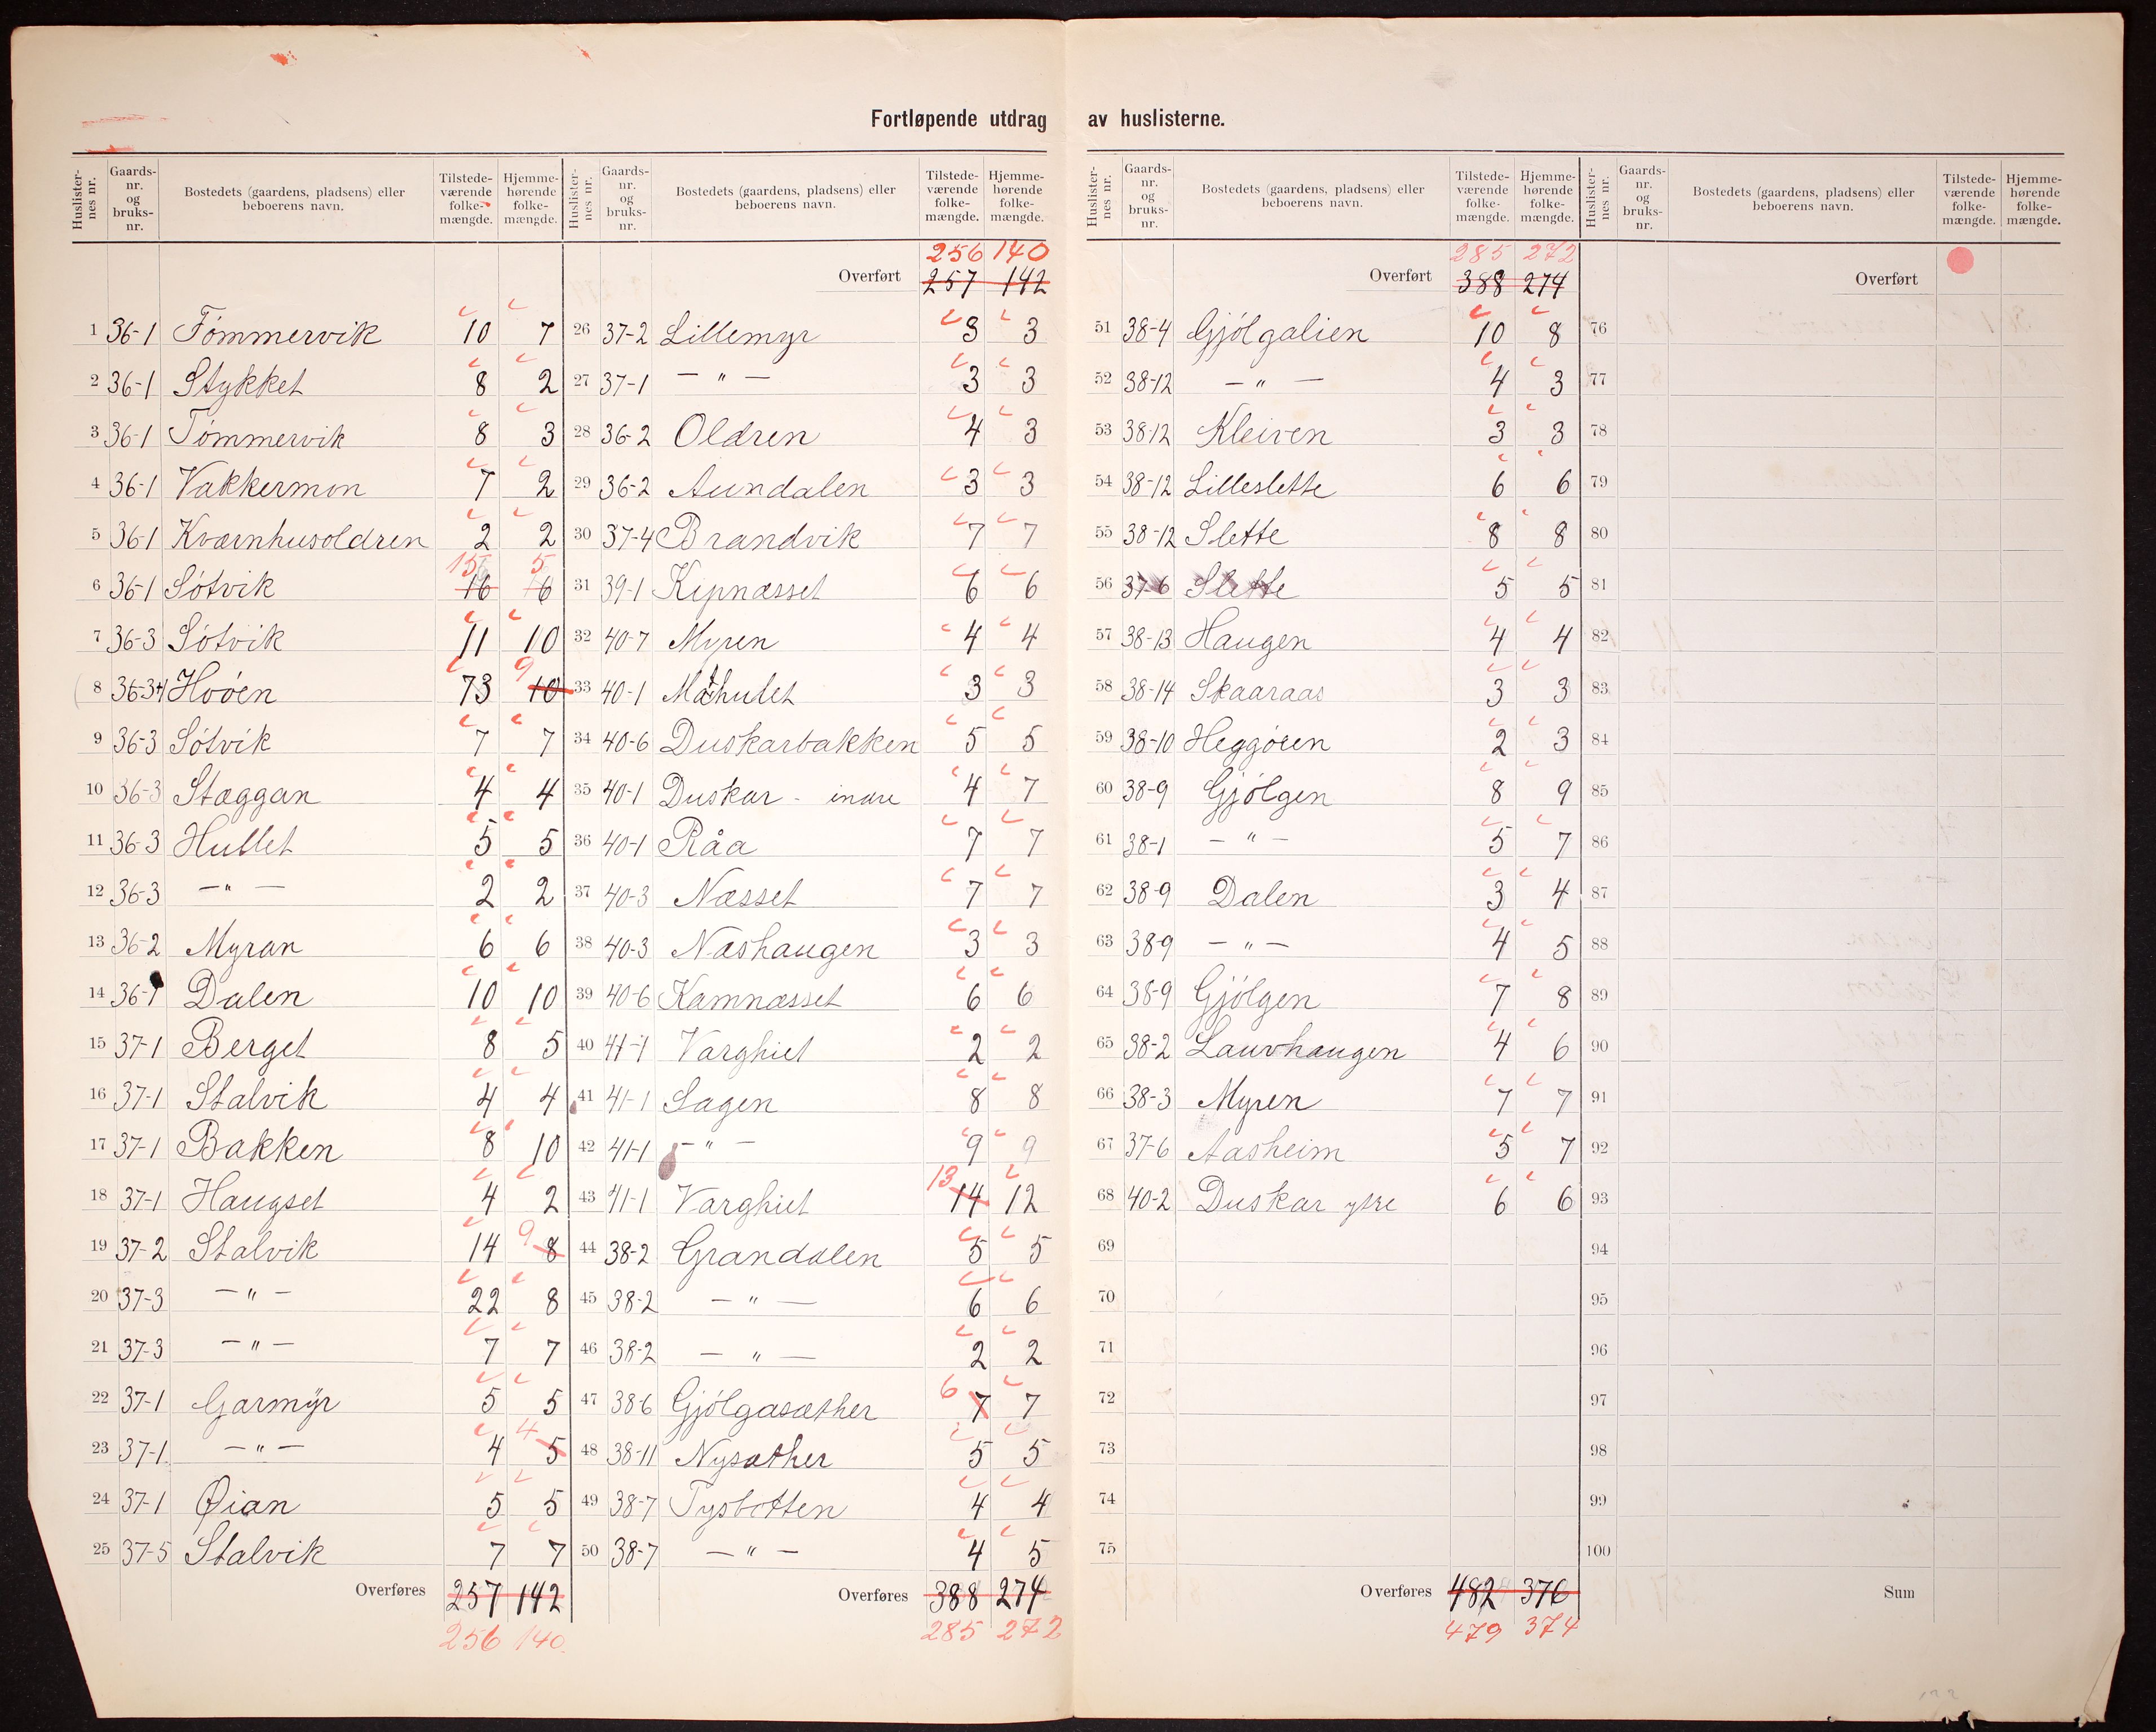 Fortløpende utdrag av huslisterne.
Huslister-nes nr. Gaards-nr. og bruks-nr. Bostedets (gaardens, pladsens) eller beboerens navn. Tilstede-værende folke-mængde. Hjemme-hørende folke-mængde.
1 36-1 Tømmervik 10 7
2 36-1 Stykket 8 2
3 36-1 Tømmervik 8 3
4 36-1 Vakkermon 7 2
5 36-1 Kværnhusoldren 2 2
6 36-1 Søtvik 16 15 6 5
7 36-3 Søtvik 11 10
8 36-34 Hvøen 73 10 9
9 36-3 Søtvik 7 7
10 36-3 Stæggan 4 4
11 36-3 Hullet 5 5
12 36-3 — " — 2 2
13 36-2 Myran 6 6
14 36-1 Dalen 10 10
15 37-1 Berget 8 5
16 37-1 Stalvik 4 4
17 37-1 Bakken 8 10
18 37-1 Haugset 4 2
19 37-2 Stalvik 14 8 9
20 37-3 — " — 22 8
21 37-3 — " — 7 7
22 37-1 Garmyr 5 5
23 37-1 — " — 4 5 4
24 37-1 Øian 5 5
25 37-5 Stalvik 7 7
Overføres 257 142
256 140
Huslister-nes nr. Gaards-nr. og bruks-nr. Bostedets (gaardens, pladsens) eller beboerens navn. Tilstede-værende folke-mængde. Hjemme-hørende folke-mængde.
256 140
Overført 257 142
26 37-2 Lillemyr 3 3
27 37-1 — " — 3 3
28 36-2 Oldren 4 3
29 36-2 Aundalen 3 3
30 37-4 Brandvik 7 7
31 39-1 Kipnæsset 6 6
32 40-7 Myren 4 4
33 40-1 3 3
34 40-6 Duskarbakken 5 5
35 40-1 Duskar - indre 4 7
36 40-1 Råa 7 7
37 40-3 Næsset 7 7
38 40-3 Næshaugen 3 3
39 40-6 Kamnæsset 6 6
40 41-1 Varghiet 2 2
41 41-1 Sagen 8 8
42 41-1 — " — 9 9
43 41-1 Varghiet 14 13 12
44 38-2 Grandalen 5 5
45 38-2 — " — 6 6
46 38-2 — " — 2 2
47 38-6 Gjølgasæther 7 6 7
48 38-11 Nysæther 5 5
49 38-7 Tysbotten 4 4
50 38-7 — " — 4 5
Overføres 388 274
285 272
Huslister-nes nr. Gaards-nr. og bruks-nr. Bostedets (gaardens, pladsens) eller beboerens navn. Tilstede-værende folke-mængde. Hjemme-hørende folke-mængde.
285 272
Overført 388 274
51 38-4 Gjølgalien 10 8
52 38-12 — " — 4 3
53 38-12 Kleiven 3 3
54 38-12 Lilleslette 6 6
55 38-12 Slette 8 8
56 37-6 Slette 5 5
57 38-13 Haugen 4 4
58 38-14 Skaaraas 3 3
59 38-10 Heggøien 2 3
60 38-9 Gjølgen 8 9
61 38-1 — " — 5 7
62 38-9 Dalen 3 4
63 38-9 — " — 4 5
64 38-9 Gjølgen 7 8
65 38-2 Lauvhaugen 4 6
66 38-3 Myren 7 7
67 37-6 Aasheim 5 7
68 40-2 Duskar ytre 6 6
69
70
71
72
73
74
75
Overføres 482 376
479 374
Huslister-nes nr. Gaards-nr. og bruks-nr. Bostedets (gaardens, pladsens) eller beboerens navn. Tilstede-værende folke-mængde. Hjemme-hørende folke-mængde.
Overført
76
77
78
79
80
81
82
83
84
85
86
87
88
89
90
91
92
93
94
95
96
97
98
99
100
Sum